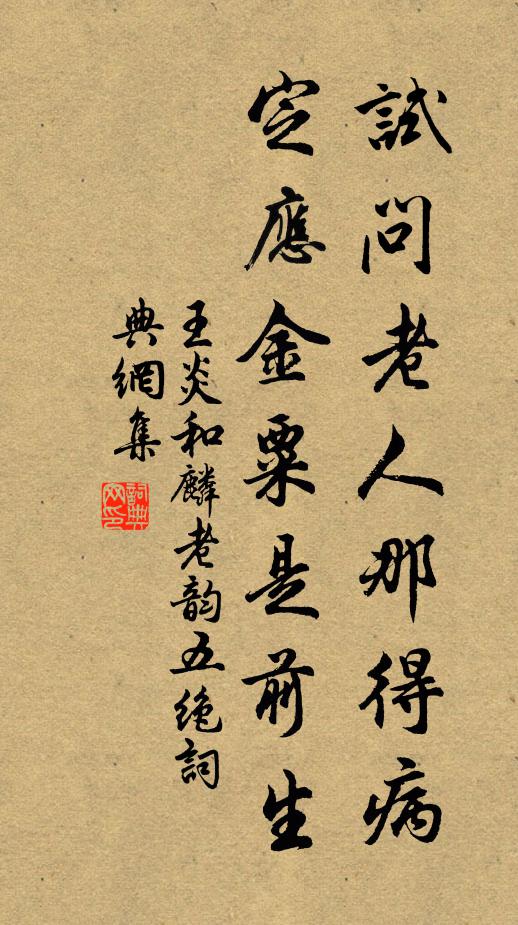 試問老人那得病
定應金粟是前生
王炎和麟老韵五绝詞
典網集
詞典
网印